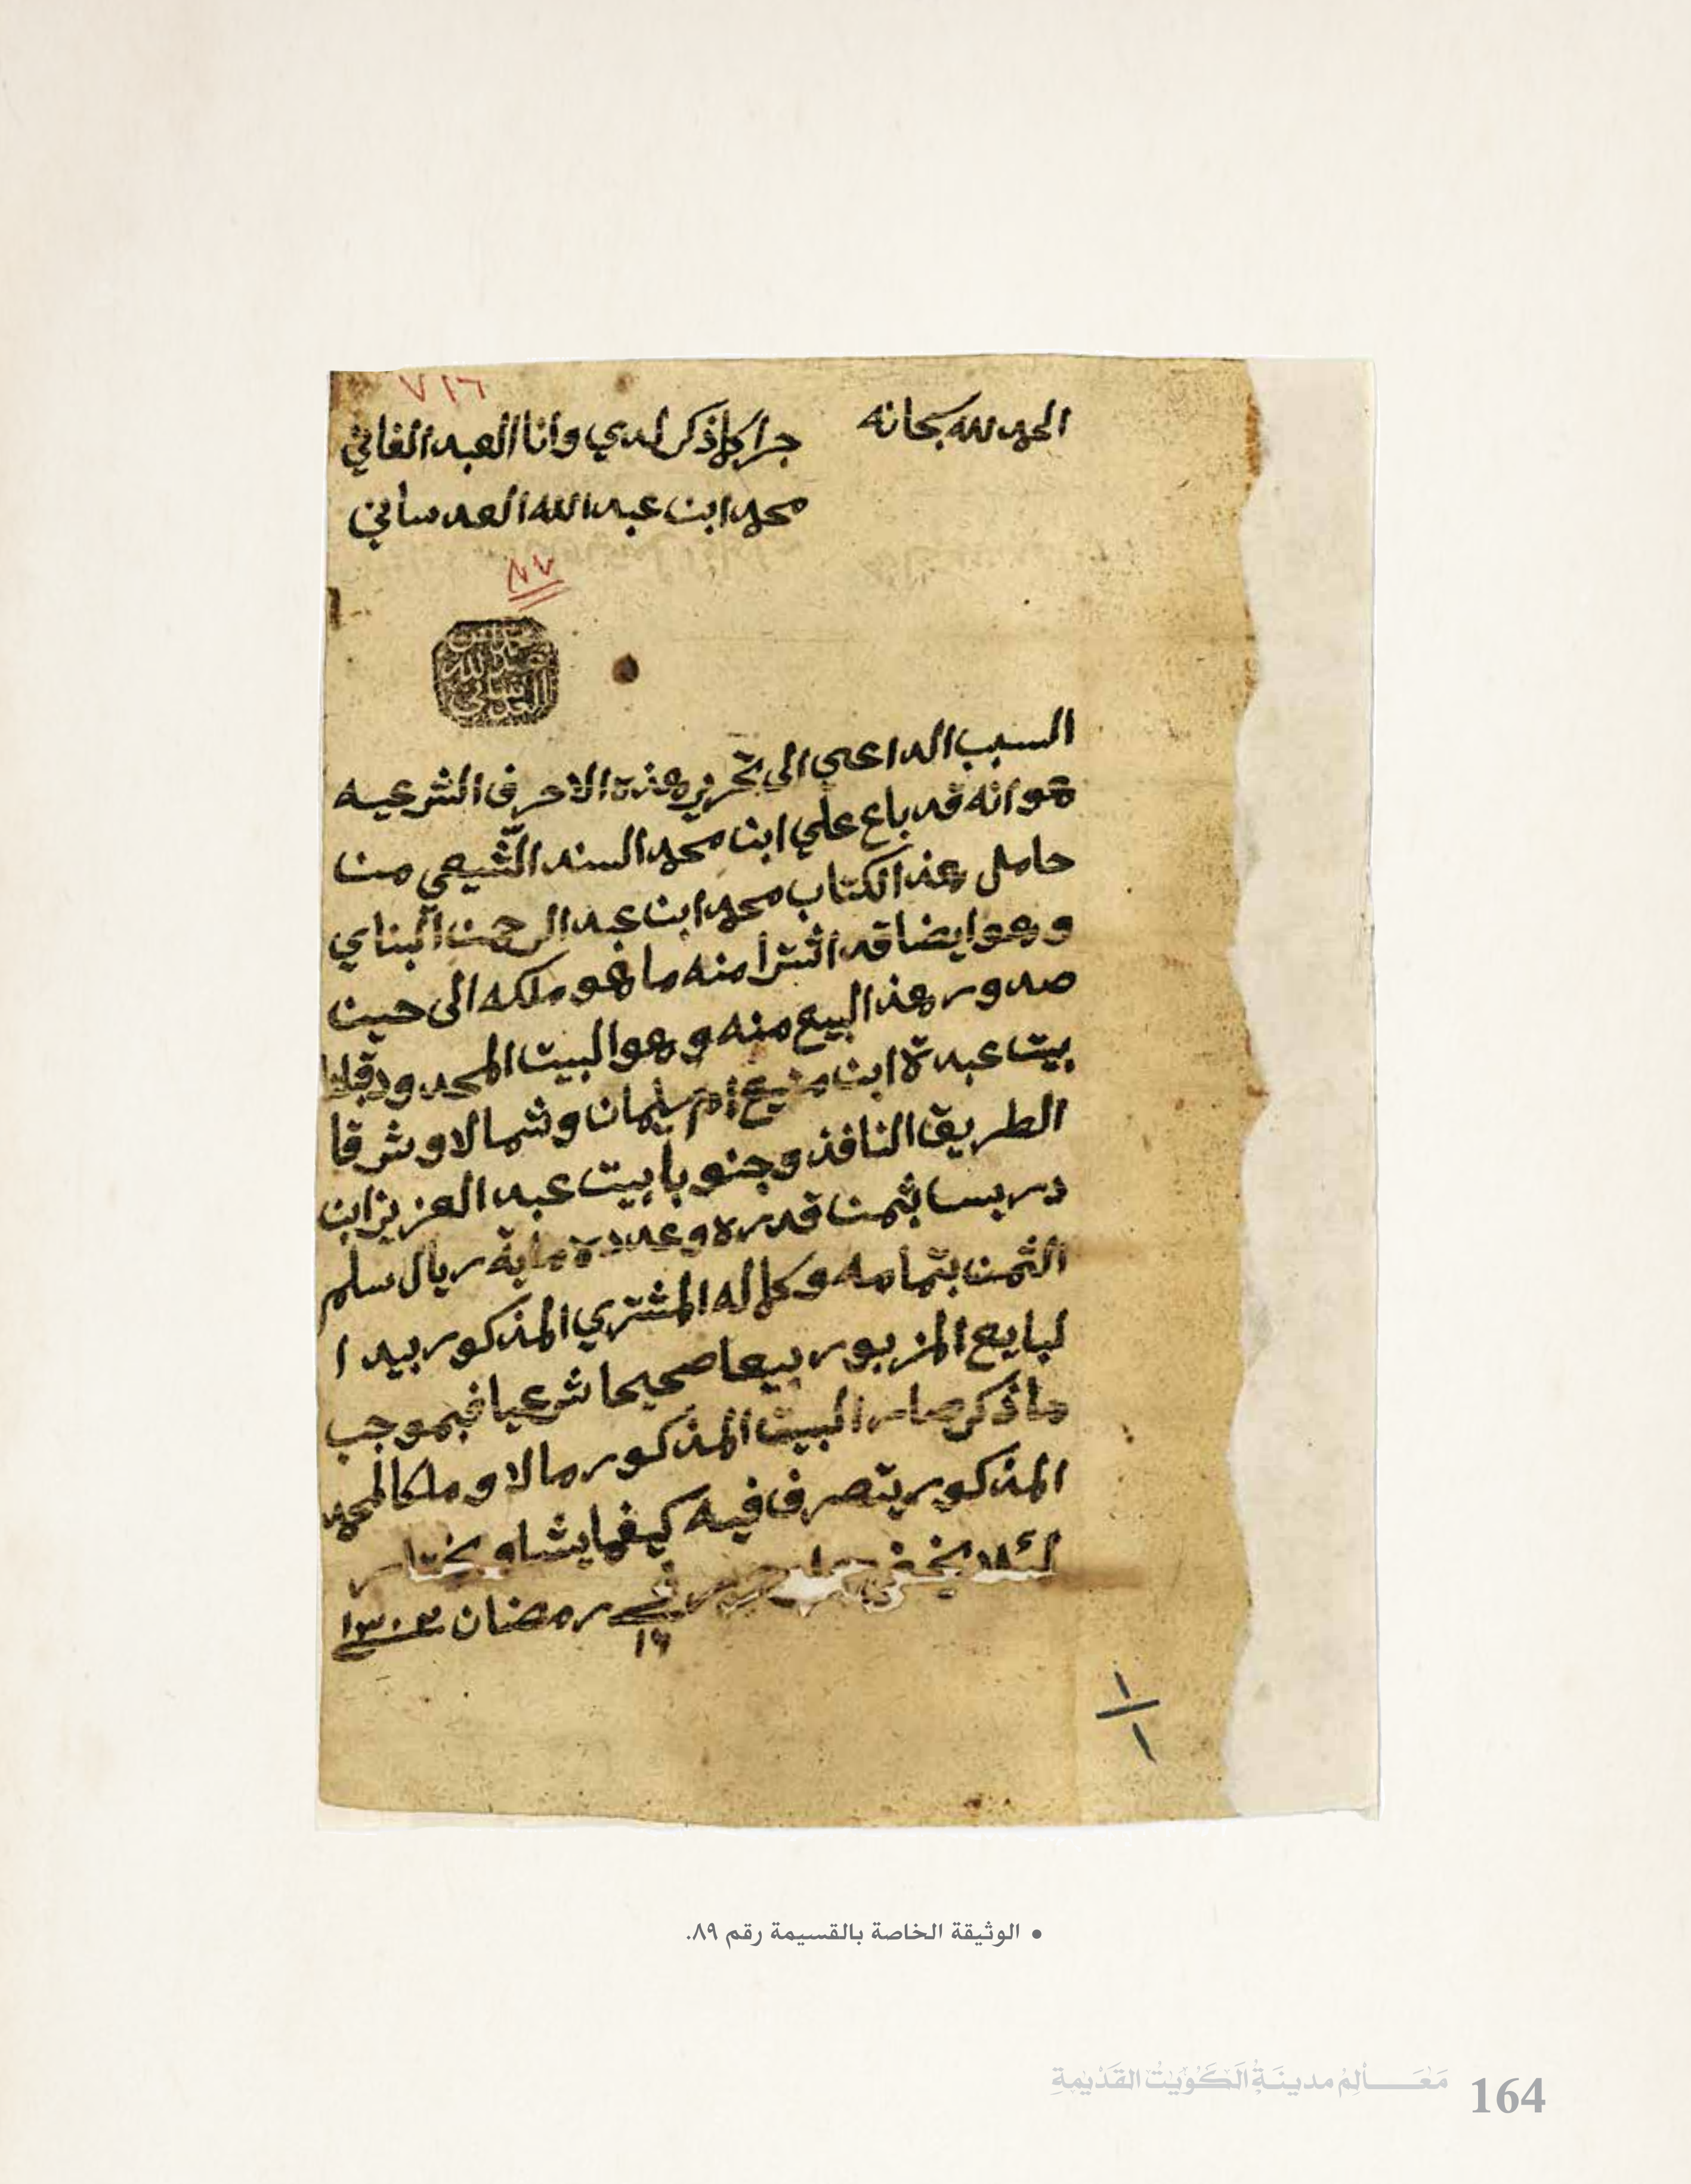 ٧١٦
الحمد لله سبحانه
جرا كلما ذكر لدي وانا العبد الفاني
محمد ابن عبدالله العدساني
محمد بن عبد الله العدساني
السبب الداعي الى تحرير هذه الاحرف الشرعيه
هو انه قد باع علي ابن محمد السند الشيعي من
حامل هذ الكتاب محمد ابن عبد الرحمن البناي
وهو ايضا قد اشترا منه ما هو ملكه الى حين
صدور هذ البيع منه وهو البيت المحدود قبلة
بيت عبدة ابن منيع ام سليمان وشمالا وشرقا
الطريق النافذ وجنوبا بيت عبد العزيز ابن
دربسا بثمن قدره وعدده ماية ريال سلم
الثمن بتمامه وكماله المشتري المذكور بيد ا
لبايع المزبور بيعا صحيحا شرعيا فبموجب
ماذكر صار البيت المذكور مالا وملكا لمحمد
المذكور يتصرف فيه كيفما يشا ويختار
لئلا يخفى في ١٦ رمضان ١٣٠٣
١
١
• الوثيقة الخاصة بالقسيمة رقم ٨٩.
مَعَالِمُ مدينَةِ الكُوَيْتِ القَدْيمَةِ 164